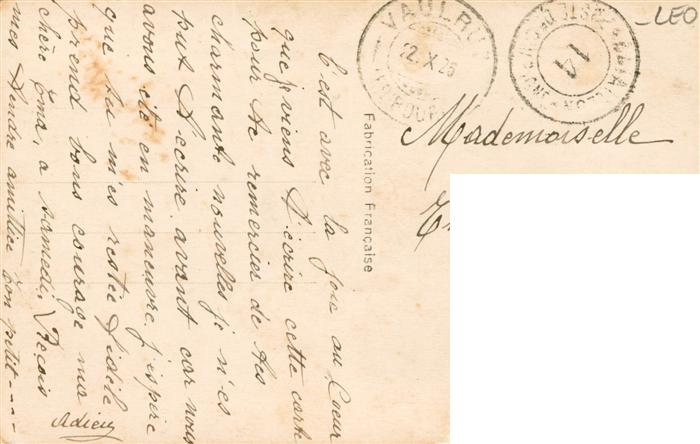 C'est avec la joie au Coeur
que je viens t'écrire cette carte
pour te remercier de tes
charmante nouvelles je n'es
put t'écrire avant car nous
avons été en maneuvre j'espère
que tu m'es restée fidèle
prend bons courage ma
chère Ema, a samedi, Reçois
mes tendre amitiée ton petit ----
Adieu
Fabrication Française
VAULRU
22. X. 25
14
LEO
Mademoiselle